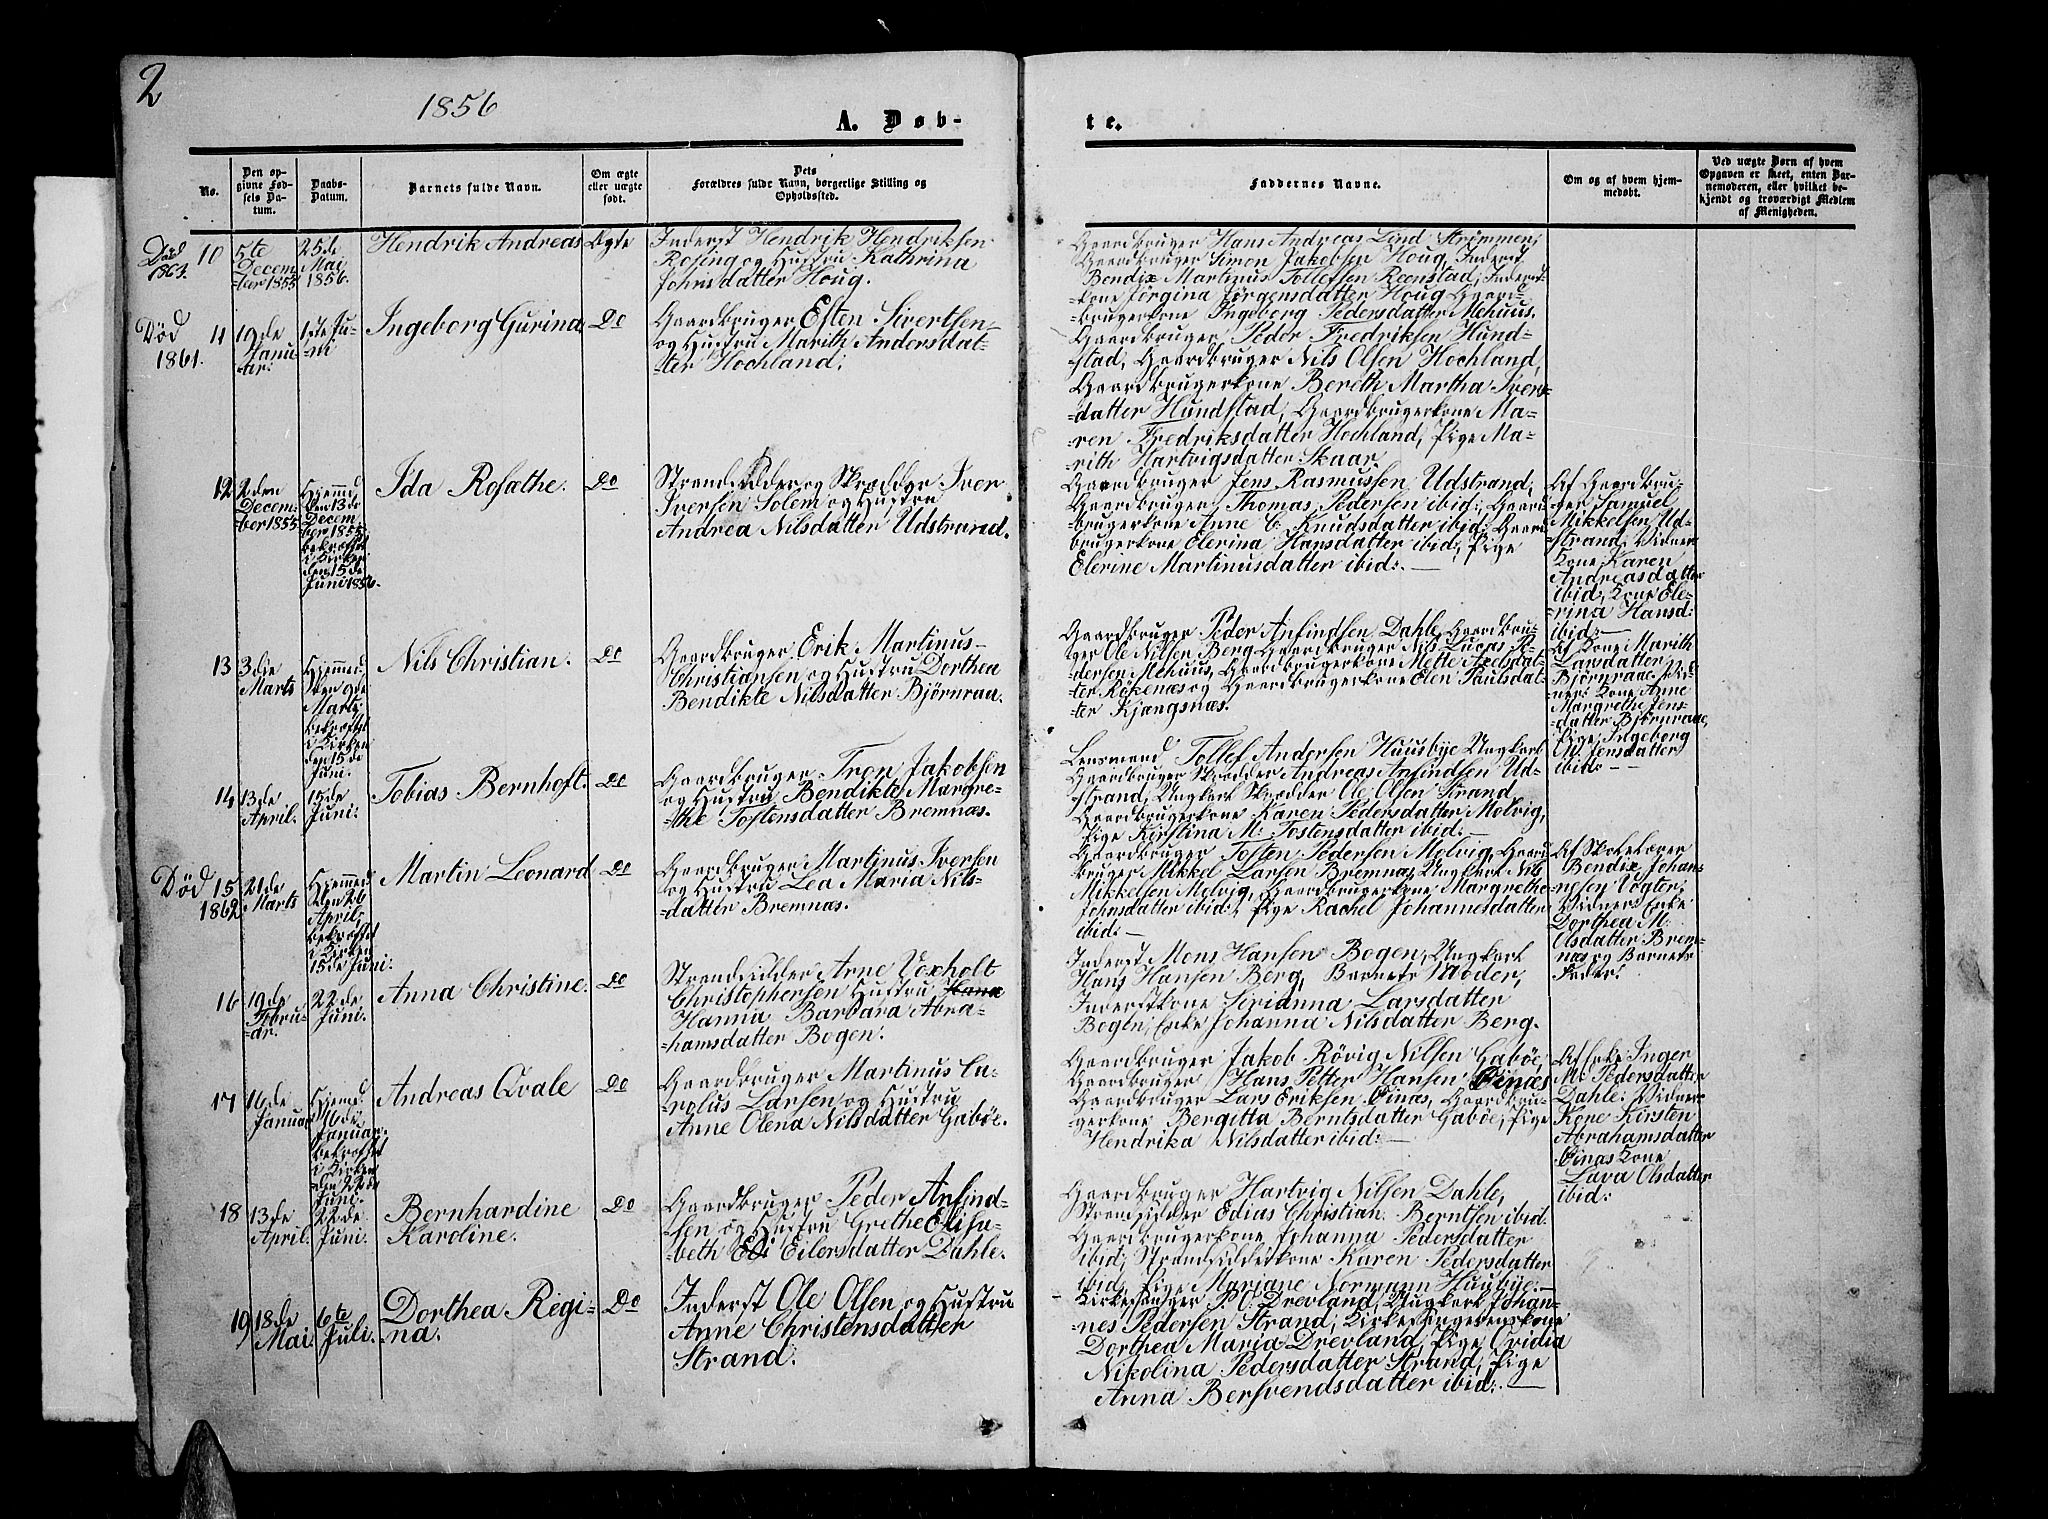 2
1856
A. Døb-
te.
No.
Den op-
givne Fød-
sels Da-
tum.
Daabs-
Datum.
Barnets fulde Navn.
Om ægte
eller uægte
født.
Dets
Forældres fulde Navn, borgerlige Stilling og
Opholdssted.
Faddernes Navne.
Om og af hvem hjem-
medøbt.
Ved uægte Børn af hvem
Opgaven er skeet, enten Bar-
nemoderen, eller hvilket be-
kjendt og troværdigt Medlem
af Menigheden.
Død
10
5te
Decem
-ber 1855
25de
Mai
1856.
Hendrik Andreas
Ægte
Inderst Hendrik Hendriksen
Rosing og Hustru Kathrina
Johnsdatter Houg.
Gaardbruger Hans Andreas Lind Strømmen,
Gaardbruger Simon Jakobsen Houg, Inderst
Bendix Martinus Tollefsen Reenstad, Inderst-
-kone Jørgina Jørgensdatter Houg Gaard-
-brugerkone Ingeborg Pedersdatter Mehuus.
Død
1861.
11
19de
Janu-
ar:
1ste Ju-
ni
Ingeborg Gurina
Do
Gaardbruger Esten Sivertsen
og Hustru Marith Andersdat-
-ter Hochland;
Gaardbruger Peder Fredriksen Hund-
-stad, Gaardbruger Nils Olsen Hochland,
Gaardbrugerkone Bereth Martha Iver-
-datter Hundstad, Gaardbrugerkone Ma-
-ren Fredriksdatter Hochland, Pige Ma-
-rith Hartvigsdatter Skaar.
12
2den
Decem-
ber 1855
Hjemmd
den 13de
Decem-
ber 1855
bekræftet
i Kirken
den 15de
Juni 1856.
Ida Rosathe.
Do
Strandsidder og Skrædder Iver
Iversen Solem og Hustru
Andrea Nilsdatter Udstrand.
Gaardbruger Jens Rasmussen Udstrand,
Gaardbruger Thomas Pedersen ibid:, Gaard-
brugerkone Anne C. Knudsdatter ibid: Gaard
brugerkone Elerina Hansdatter ibid:, Pige
Elerine Martinusdatter ibid:. —
Af Gaardbru-
ger Samuel
Mikkelsen Ud-
strand, Vidner
Kone Karen
Andreasdatter
ibid:, Kone Ele-
-rina Hansd:
ibid: —
13
3die
Marts
Hjemmed:
den 9de
Marts
bekræftet
i Kirken
den 15de
Juni.
Nils Christian.
Do
Gaardbruger Erik Martinus-
Christiansen og Hustru Dorthea
Bendikte Nilsdatter Bjørnraa.
Gaardbruger Peder Anfindsen Dahle, Gaardbru-
ger Ole Nilsen Berg, Gaardbruger Nils Lucas P-
dersen Mehuus, Gaardbrugerkone Mette Axelsdat-
ter Røkenæs og Gaardbrugerkone Elen Paulsdat-
ter Kjangsnæs.
Af Kone Marith
Larsdatter
Bjørnraae, Vid-
ner: Kone Anne
Margrethe Jens-
datter Bjørnraae,
Pige Ingeborg
Jensdatter
ibid: —
14
13de
April.
15de
Juni:
Tobias Bernhoft.
Do
Gaardbruger Tron Jakobsen
og Hustru Bendikte Margre-
-the Tostensdatter Bremnæs.
Lensmand Tollef Andersen Huusbye Ungkarl
Gaardbruger Skrædder Andreas Anfindsen Ud-
strand, Ungkarl Skrædder Ole Olsen Strand
Gaardbrugerkone Karen Pedersdatter Molvig,
Pige Kirstina M: Tostensdatter ibid: —
Død
1862
15
21de
Marts
Hjemmed
den 26
April,
bekræftet
i Kirken
15de Juni:
Martin Leonard
Do
Gaardbruger Martinus Iversen
og Hustru Lea Maria Nils-
-datter Bremnæs.
Gaardbruger Tosten Pedersen Molvig, Gaard
bruger Mikkel Larsen Bremnæs, Ungkarl Nils
Mikkelsen Molvig, Gaardbrugerkone Margrethe
Johnsdatter ibid:, Pige Rachel Johannesdatter
ibid: —
Af Skolelærer
Bendix Johan-
-nesen Vogter;
Vidner: Enke
Dorthea M:
Olsdatter Brem-
næs og Barnets
Fader!
16
19de
Febru-
ar.
22de
Juni.
Anna Christine.
Do
Strandsidder Arne Voxholt
Christophersen Hustru
Hanna Barbara Abra-
-hamsdatter Bogen.
Inderst Mons Hansen Bogen, Ungkarl
Hans Hansen Berg, Barnets Moder,
Inderstkone Sirianna Larsdatter
Bogen, Enke Johanna Nilsdatter Berg.
17
16de
Januar
Hjemd
26de
Januar.
bekræftet
i Kirken
den 22de
Juni.
Andreas Qvale
Do
Gaardbruger Martinus Ca-
rolus Larsen og Hustru
Anne Olena Nilsdatter Gabøe.
Gaardbruger Jakob Røvig Nilsen Gabøe,
Gaardbruger Hans Petter Hansen Einæs
Gaardbruger Lars Eriksen Einæs, Gaardbru-
gerkone Bergitta Berntsdatter Gabøe, Pige
Hendrika Nilsdatter ibid: —
Af Enke Inger
M: Pedersdatter
Dahle: Vidner
Kone Kirsten
Abrahamsdatter
Einæs Kone
Lava Olsdatter
ibid:
18
13de
April.
22de
Juni.
Bernhardine
Karoline.
Do
Gaardbruger Peder Anfind-
sen og Hustru Grethe Elisa-
beth Eilersdatter Dahle.
Gaardbruger Hartvig Nilsen Dahle,
Strandsidder Edias Christian Berntsen ibid.
Gaardbrugerkone Johanna Pedersdatter
ibid; Strandsidderkone Karen Pedersdatter
ibid, Pige Mariane Normann Huusbye. —
19
18de
Mai
6te
Juli.
Dorthea Regi-
-na.
Do
Inderst Ole Olsen og Hustru
Anne Christensdatter
Strand.
Kirkesanger P. O. Drevland, Ungkarl Johan-
nes Pedersen Strand, Kirkesangerenskone
Dorthea Maria Drevland, Pige Ovidia
Nikolina Pedersdatter Strand, Pige
Anna Bersvendsdatter ibid:. —